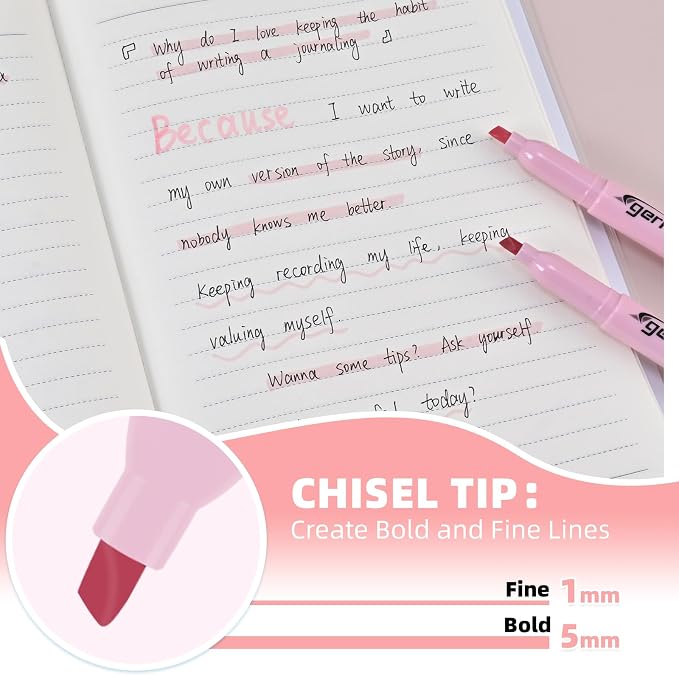 Why do I love keeping the habit
of writing a journaling
Because I want to write
my own version of the story, since
nobody knows me better.
Keeping recording my life, keeping
valuing myself.
Wanna some tips? Ask yourself
today?
CHISEL TIP:
Create Bold and Fine Lines
Fine 1mm
Bold 5mm